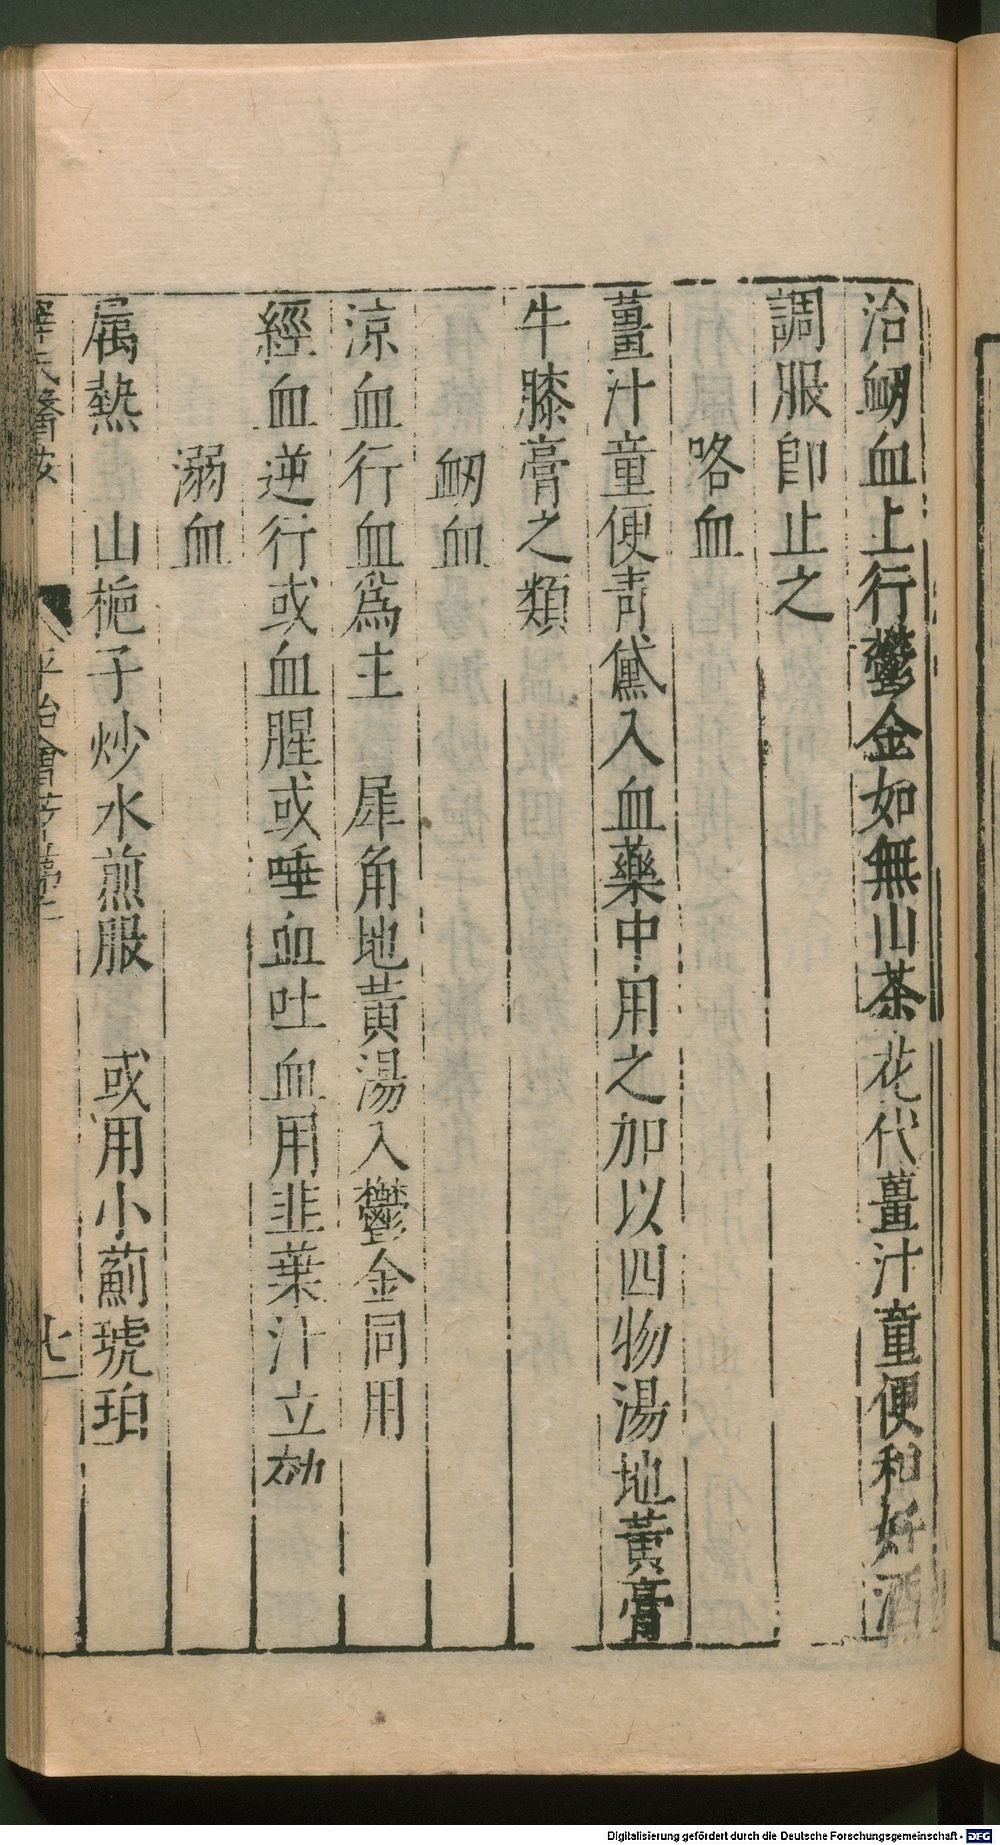 治衂血上行鬱金如無山茶花代薑汁童便和好酒
調服卽止之
咯血
薑汁童便靑黛入血藥中用之加以四物湯地黃膏
牛膝膏之類
衂血
涼血行血爲主 犀角地黃湯入鬱金同用
經血逆行或血腥或唾血吐血用韭葉汁立効
溺血
属熱 山梔子炒水煎服 或用小薊琥珀
薛氏醫按
平治會萃卷二
Digitalisierung gefördert durch die Deutsche Forschungsgemeinschaft - DFG